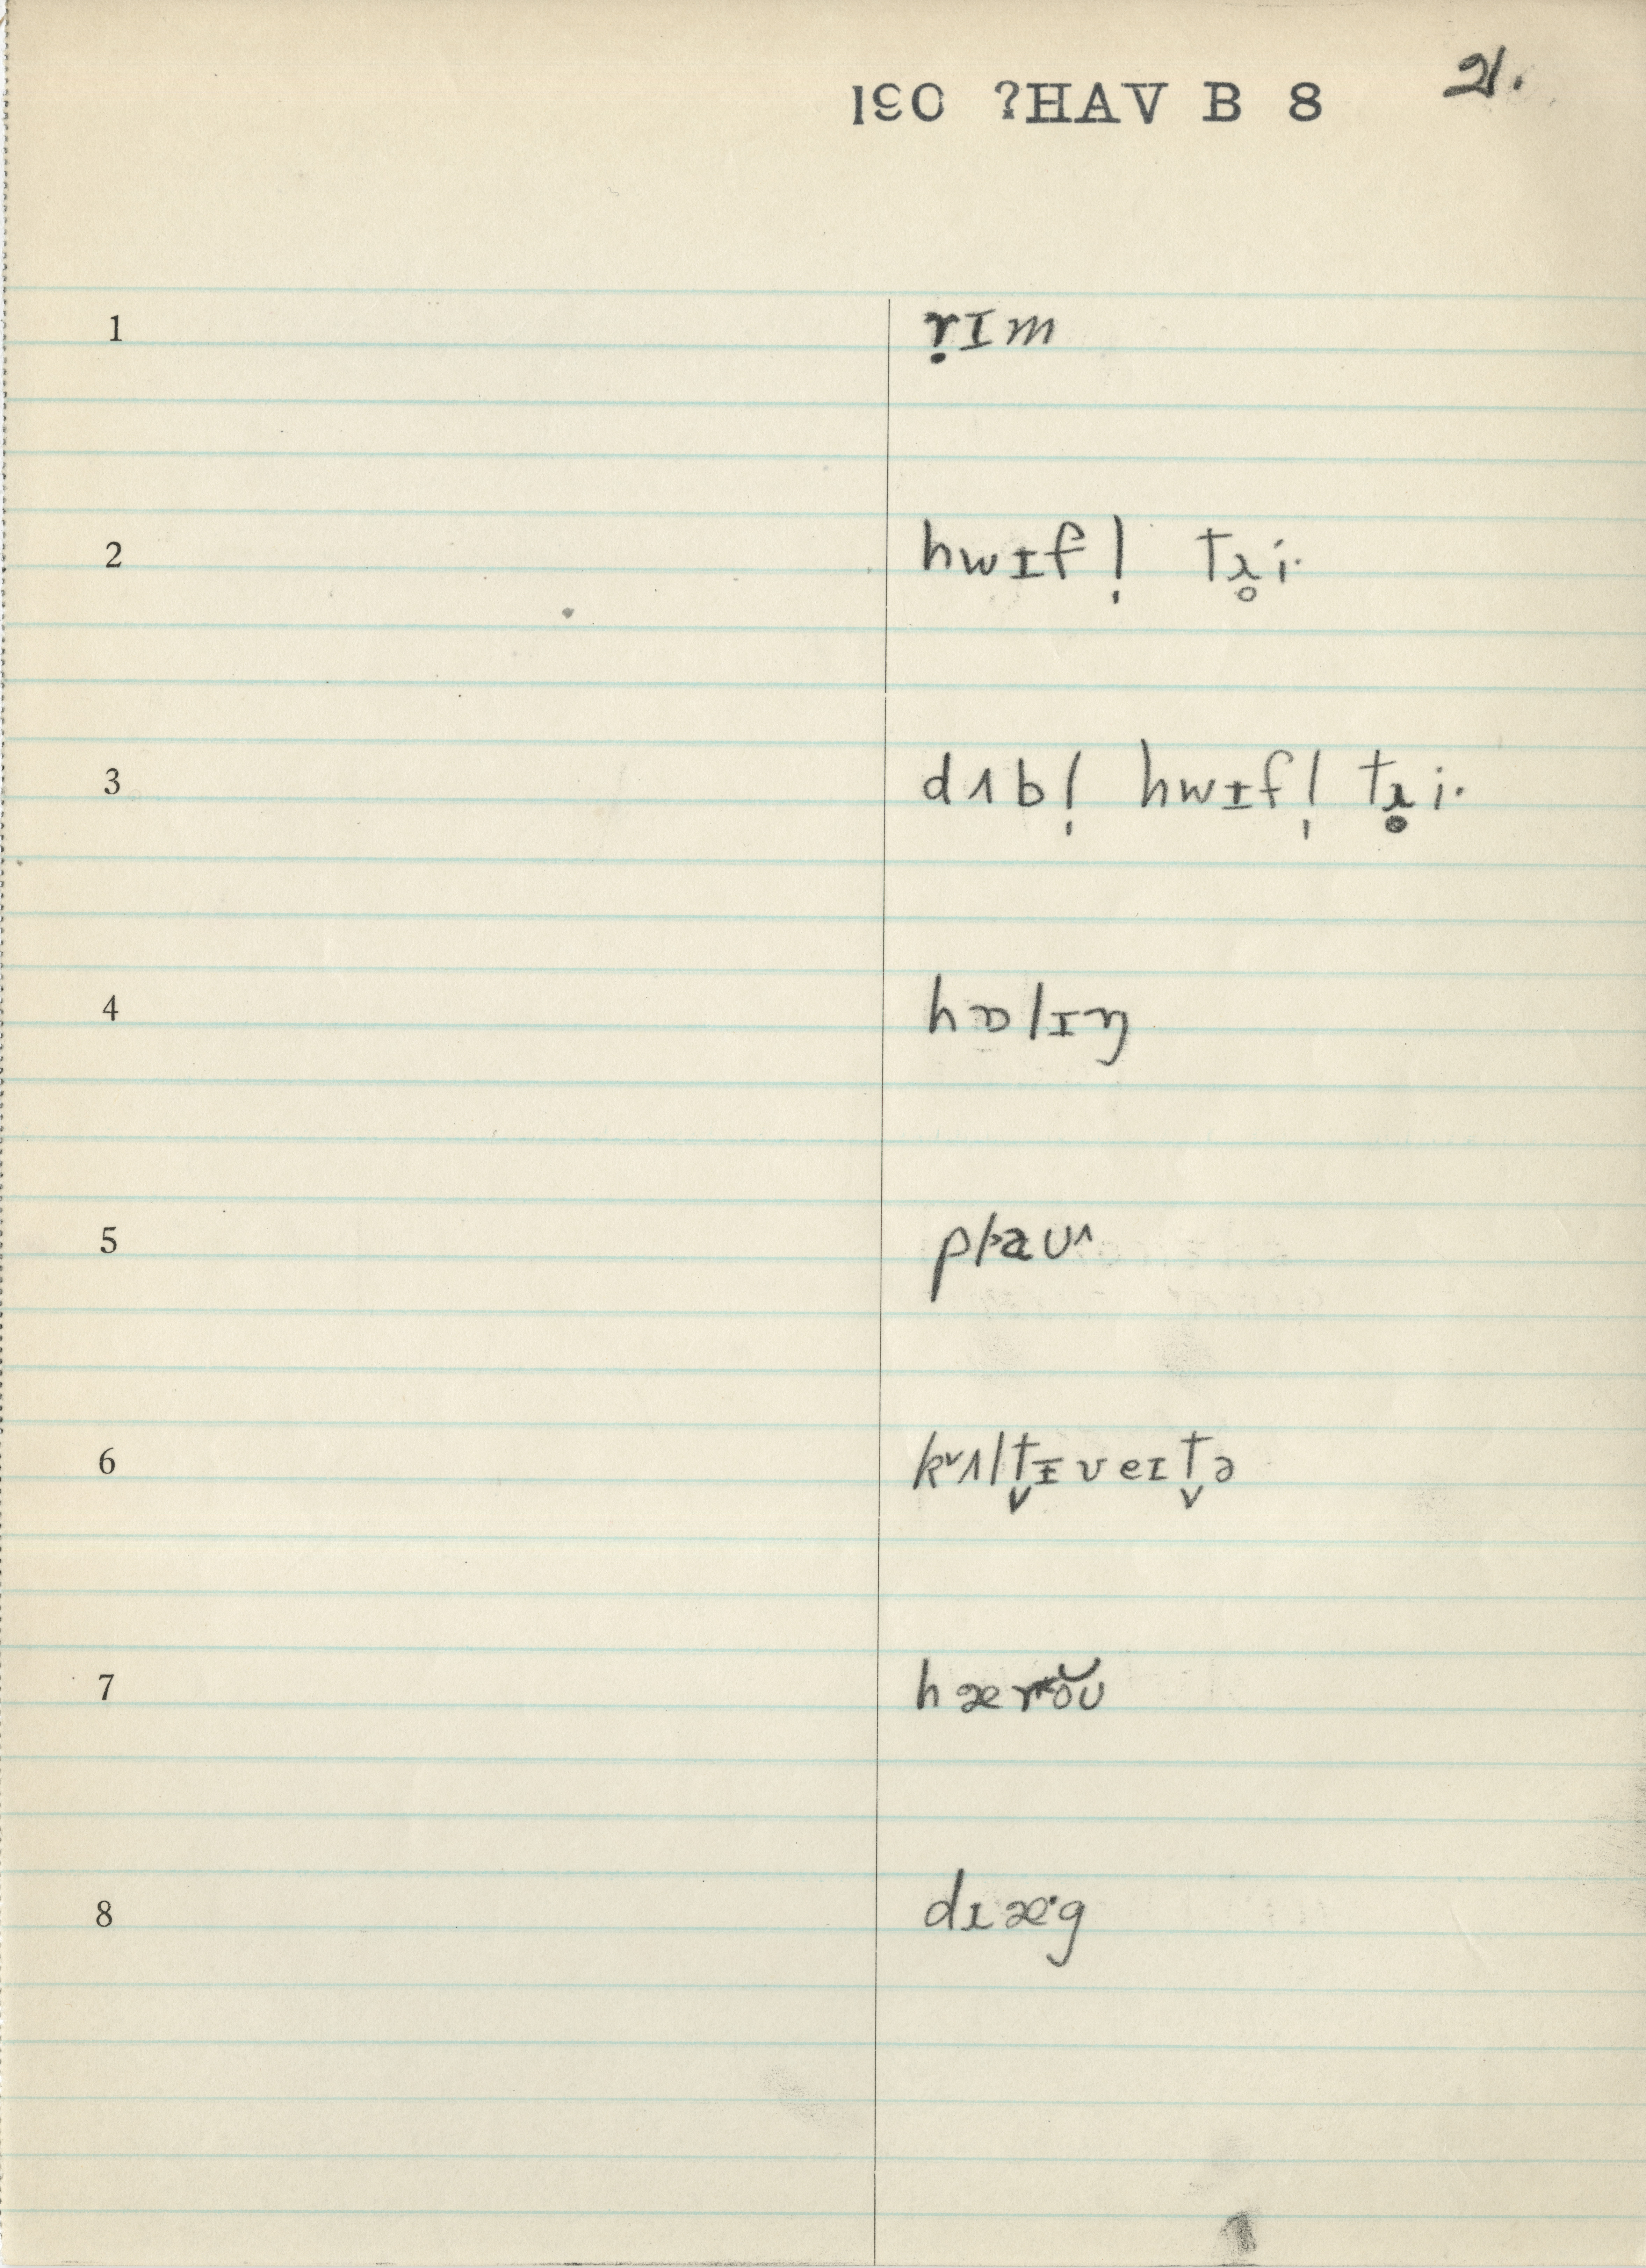 190 ?HAV B 8 21.
1 ṛɪm
2 hwɪfl̩ tɹ̥iˑ
3 dʌbl̩ hwɪfl̩ tɹ̥iˑ
4 hɒlɪŋ
5 plaʊ
6 kʌltɪ̬veɪt̬ə
7 hæroʊ
8 dɪæˑg